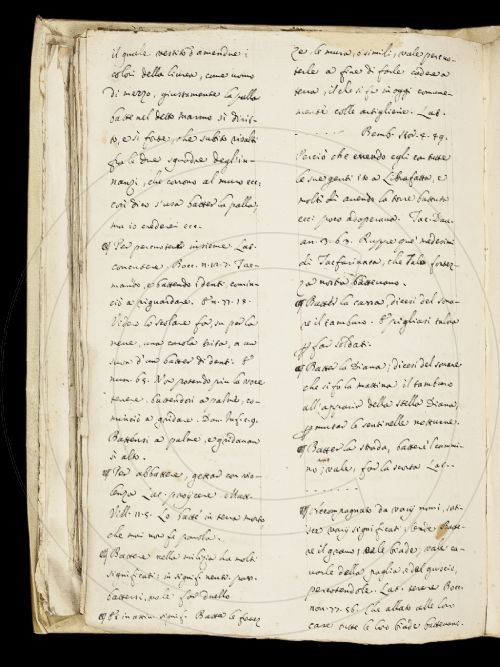 il quale vestito d'amendue i
colori della livrea, come uomo
di mezzo, giustamente la palla
batte nel detto marmo sì dirit-
to, e sì forte, che subito risalti
fra le due squadre degl'in-
nanzi, che corrono al muro ecc:
così dico s'usa batter la palla,
ma io crederei ecc.
¶ Per percuotere insieme. Lat.
concutere. Bocc. n. 77. 7. Tre-
mando, e battendo i denti, comin-
ciò a riguardare. E n. 77. 18.
Videvi lo scolare far, su per la
neve, una carola trita, a un
suon d'un batter di denti. E
num. 63. Non potendo più la voce
tenere, battendosi a palme, co-
minciò a gridare. Dan. Inf. c. 9.
Battensi a palme, e gridavan
sì alto.
¶ Per abbattere, gettar con vio-
lenza Lat. proijcere. Matt.
Vill. Lo batté in terra morto
che mai non fe parola.
¶ Battere nella milizia ha molti
significati: in signif. neutr. pass.
battersi, vale far duello
¶ E in attivo signif. Batter le fortez
ze, le mura, o simili, vale percuo-
terle a fine di farle cadere a
terra, il che si fa in oggi comune-
mente colle artiglierie. Lat.
. . . . . . . Bemb. Stor. 4. 49.
Perciò che essendo egli con tutte
le sue genti ito a Librafatta, e
molti dì avendo la torre battuta
ecc: poco adoperava. Tac. Dav.
an. Ruppe que' medesimi
di Tacfarinata, che Tala fortez-
za nostra battevano.
¶ Batter la cassa, dicesi del sona-
re il tamburo. E pigliasi talora
per far soldati.
¶ Batter la Diana; dicesi del sonare
che si fa la mattina il tamburo
all'apparir della stella Diana,
per mutar le sentinelle notturne.
¶ Batter la strada, batter il cammi-
no; vale, far la scorta Lat. . .
. . . . . . .
¶ Accompagnato da varij nomi, sorti-
sce varij significati, onde Batte-
re il grano, o le biade, vale ca-
varle della paglia, e del guscio,
percotendole. Lat. terere Bocc.
nov. 77. 56. Che allato alle lor
case tutte le lor biade battevano.